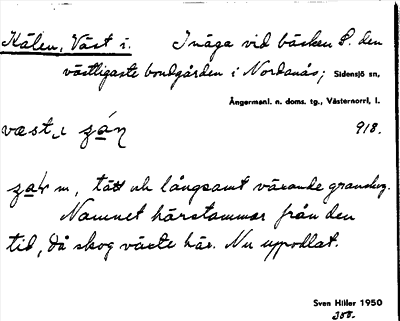 Kälen, Väst i. Inäga vid bäcken S. den
västligaste bondgården i Nordanås; Sidensjö sn,
Ångermanl. n. doms. tg., Västernorrl. l.
væst, i 918.
m, tätt och långsamt växande granskog.
Namnet härstammar från den
tid, då skog växte här. Nu uppodlat.
Sven Hiller 1950
358.